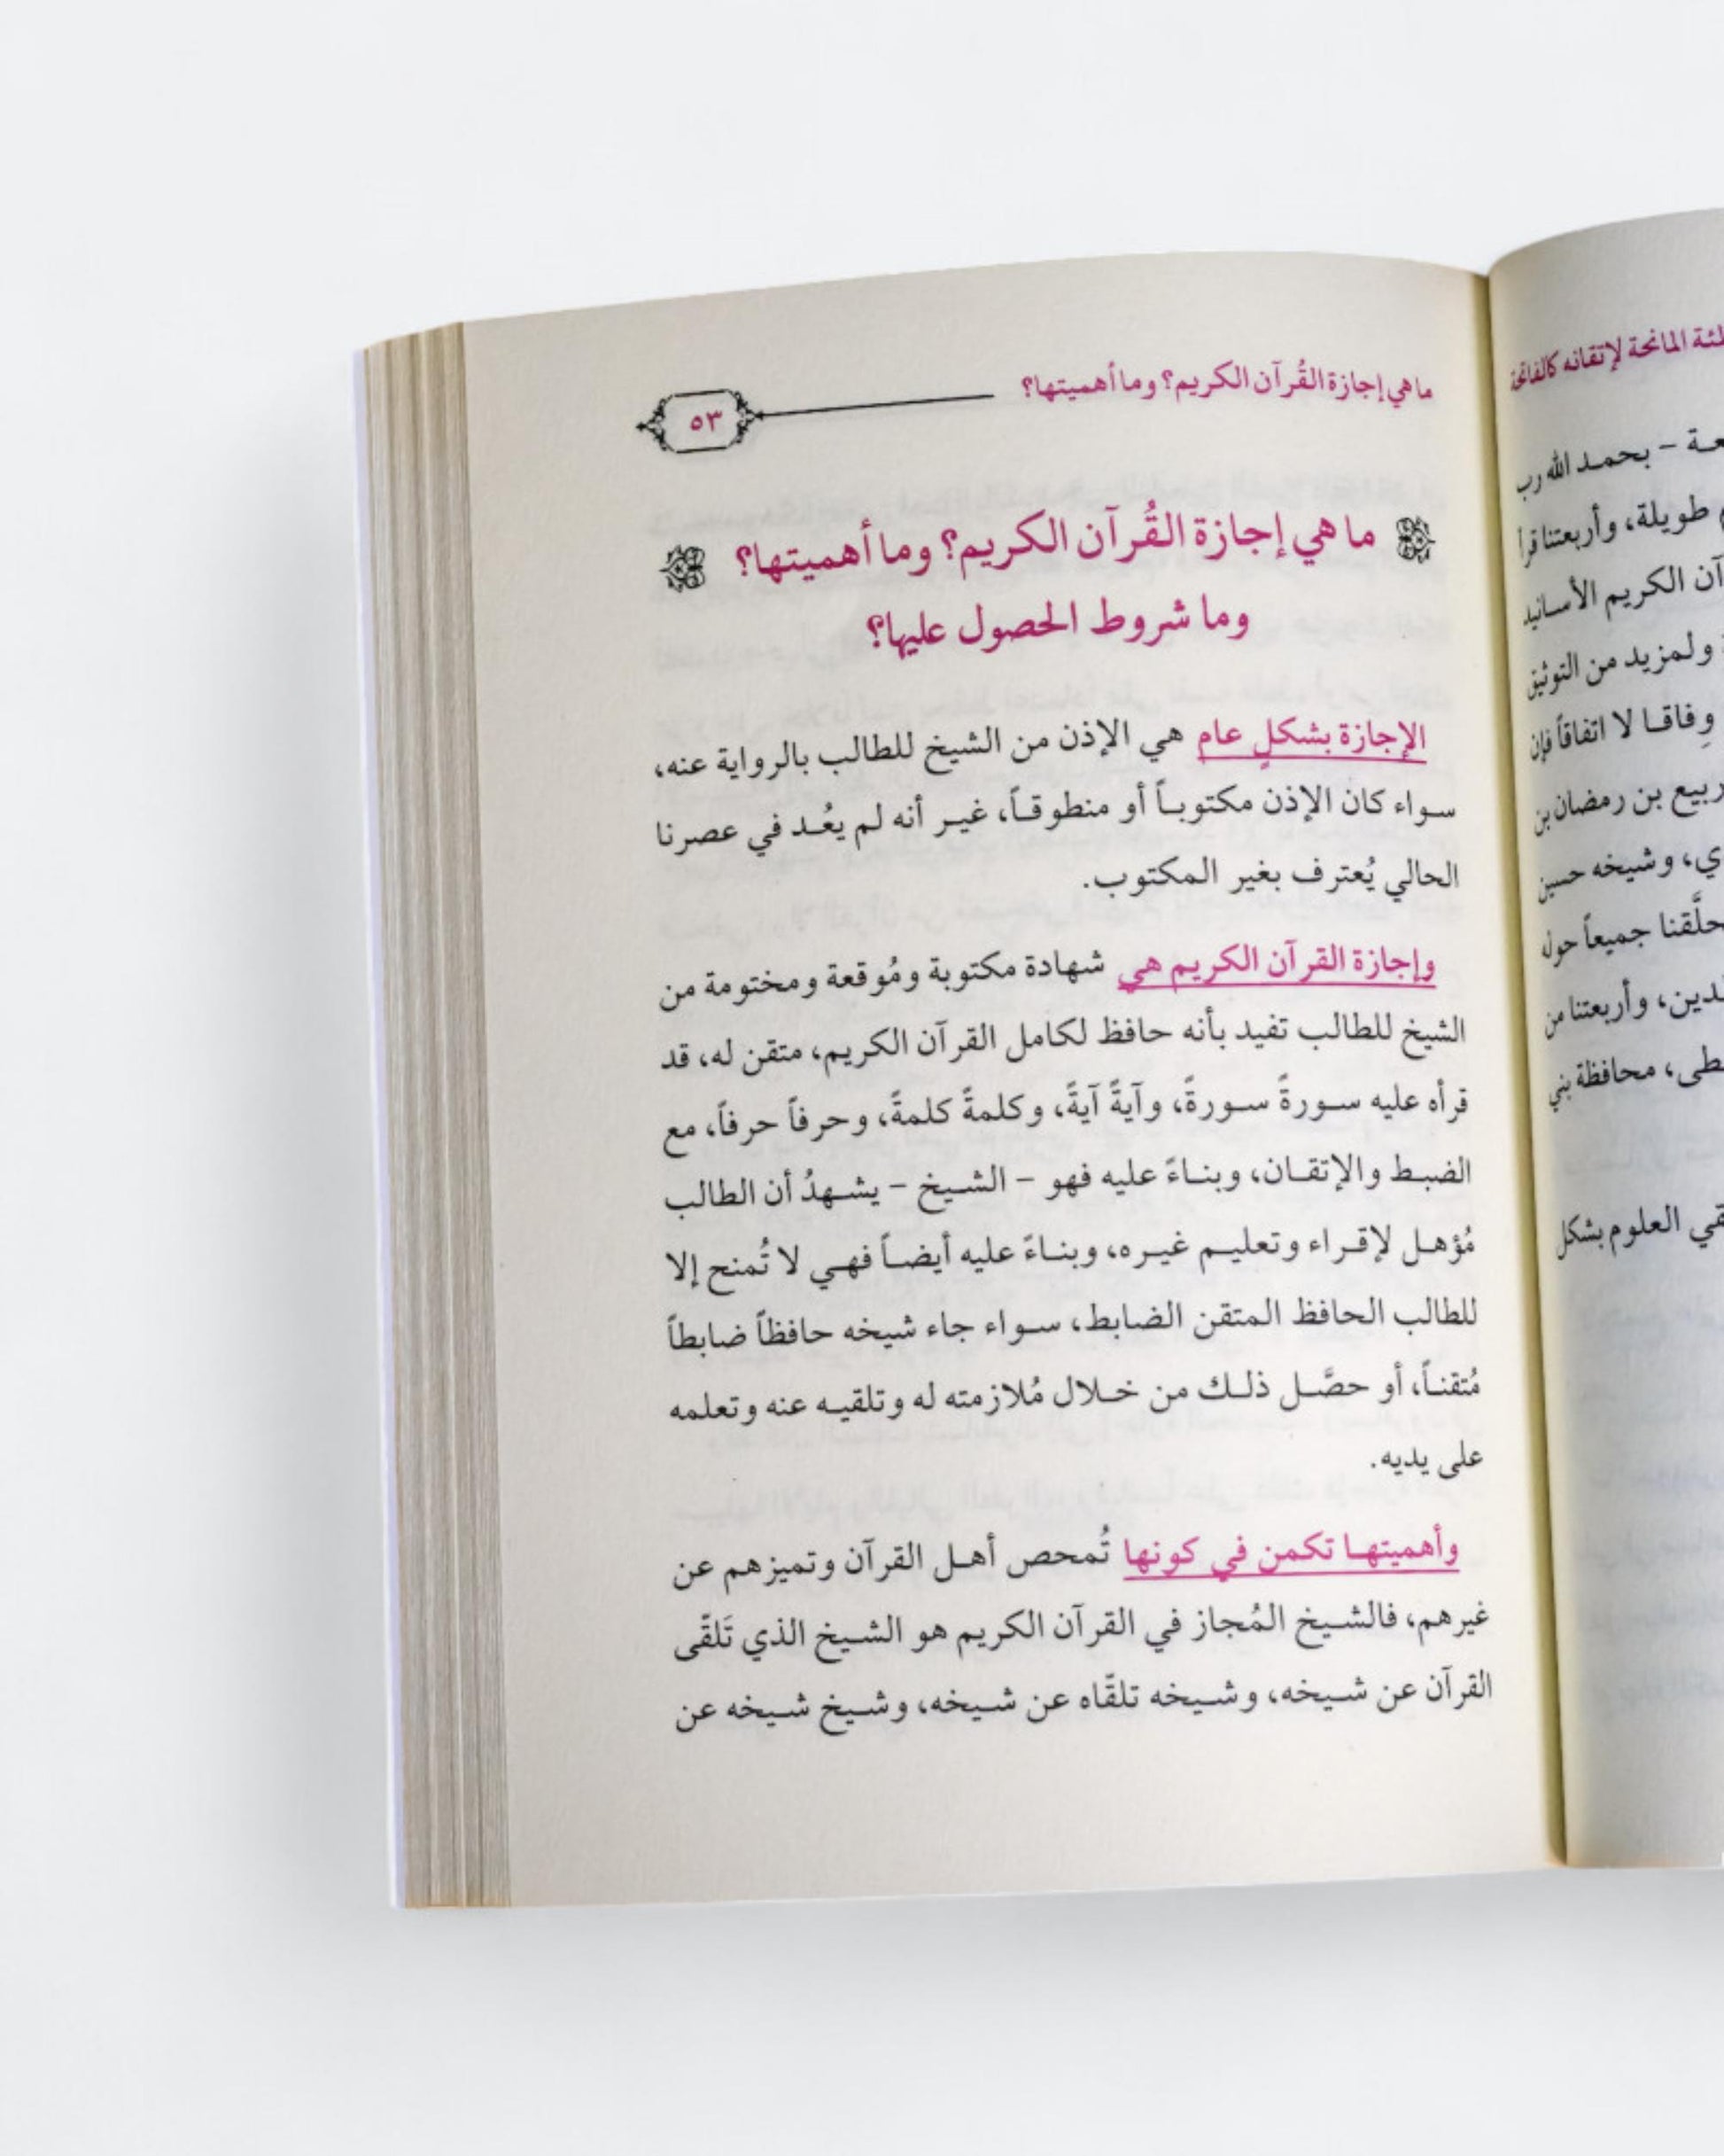 لثة المانحة لإتقانه كالفاتحة
عة – بحمد الله رب
طويلة، وأربعتنا قرأ
آن الكريم الأسانيد
ولمزيد من التوثيق
وِفاقا لا اتفاقاً فإن
ربيع بن رمضان بن
ي، وشيخه حسين
حلَّقنا جميعاً حوله
وأربعتنا من
طى، محافظة بني
قي العلوم بشكل
ما هي إجازة القُرآن الكريم؟ وما أهميتها؟
٥٣
ما هي إجازة القُرآن الكريم؟ وما أهميتها؟
وما شروط الحصول عليها؟
الإجازة بشكلٍ عام هي الإذن من الشيخ للطالب بالرواية عنه،
سواء كان الإذن مكتوباً أو منطوقاً، غير أنه لم يعُد في عصرنا
الحالي يُعترف بغير المكتوب.
وإجازة القرآن الكريم هي شهادة مكتوبة ومُوقعة ومختومة من
الشيخ للطالب تفيد بأنه حافظ لكامل القرآن الكريم، متقن له، قد
قرأه عليه سورةً سورةً، وآيةً آيةً، وكلمةً كلمةً، وحرفاً حرفاً، مع
الضبط والإتقان، وبناءً عليه فهو – الشيخ – يشهدُ أن الطالب
مُؤهل لإقراء وتعليم غيره، وبناءً عليه أيضاً فهي لا تُمنح إلا
للطالب الحافظ المتقن الضابط، سواء جاء شيخه حافظاً ضابطاً
مُتقناً، أو حصَّل ذلك من خلال مُلازمته له وتلقيه عنه وتعلمه
على يديه.
وأهميتها تكمن في كونها تُمحص أهل القرآن وتميزهم عن
غيرهم، فالشيخ المُجاز في القرآن الكريم هو الشيخ الذي تَلقّى
القرآن عن شيخه، وشيخه تلقّاه عن شيخه، وشيخ شيخه عن